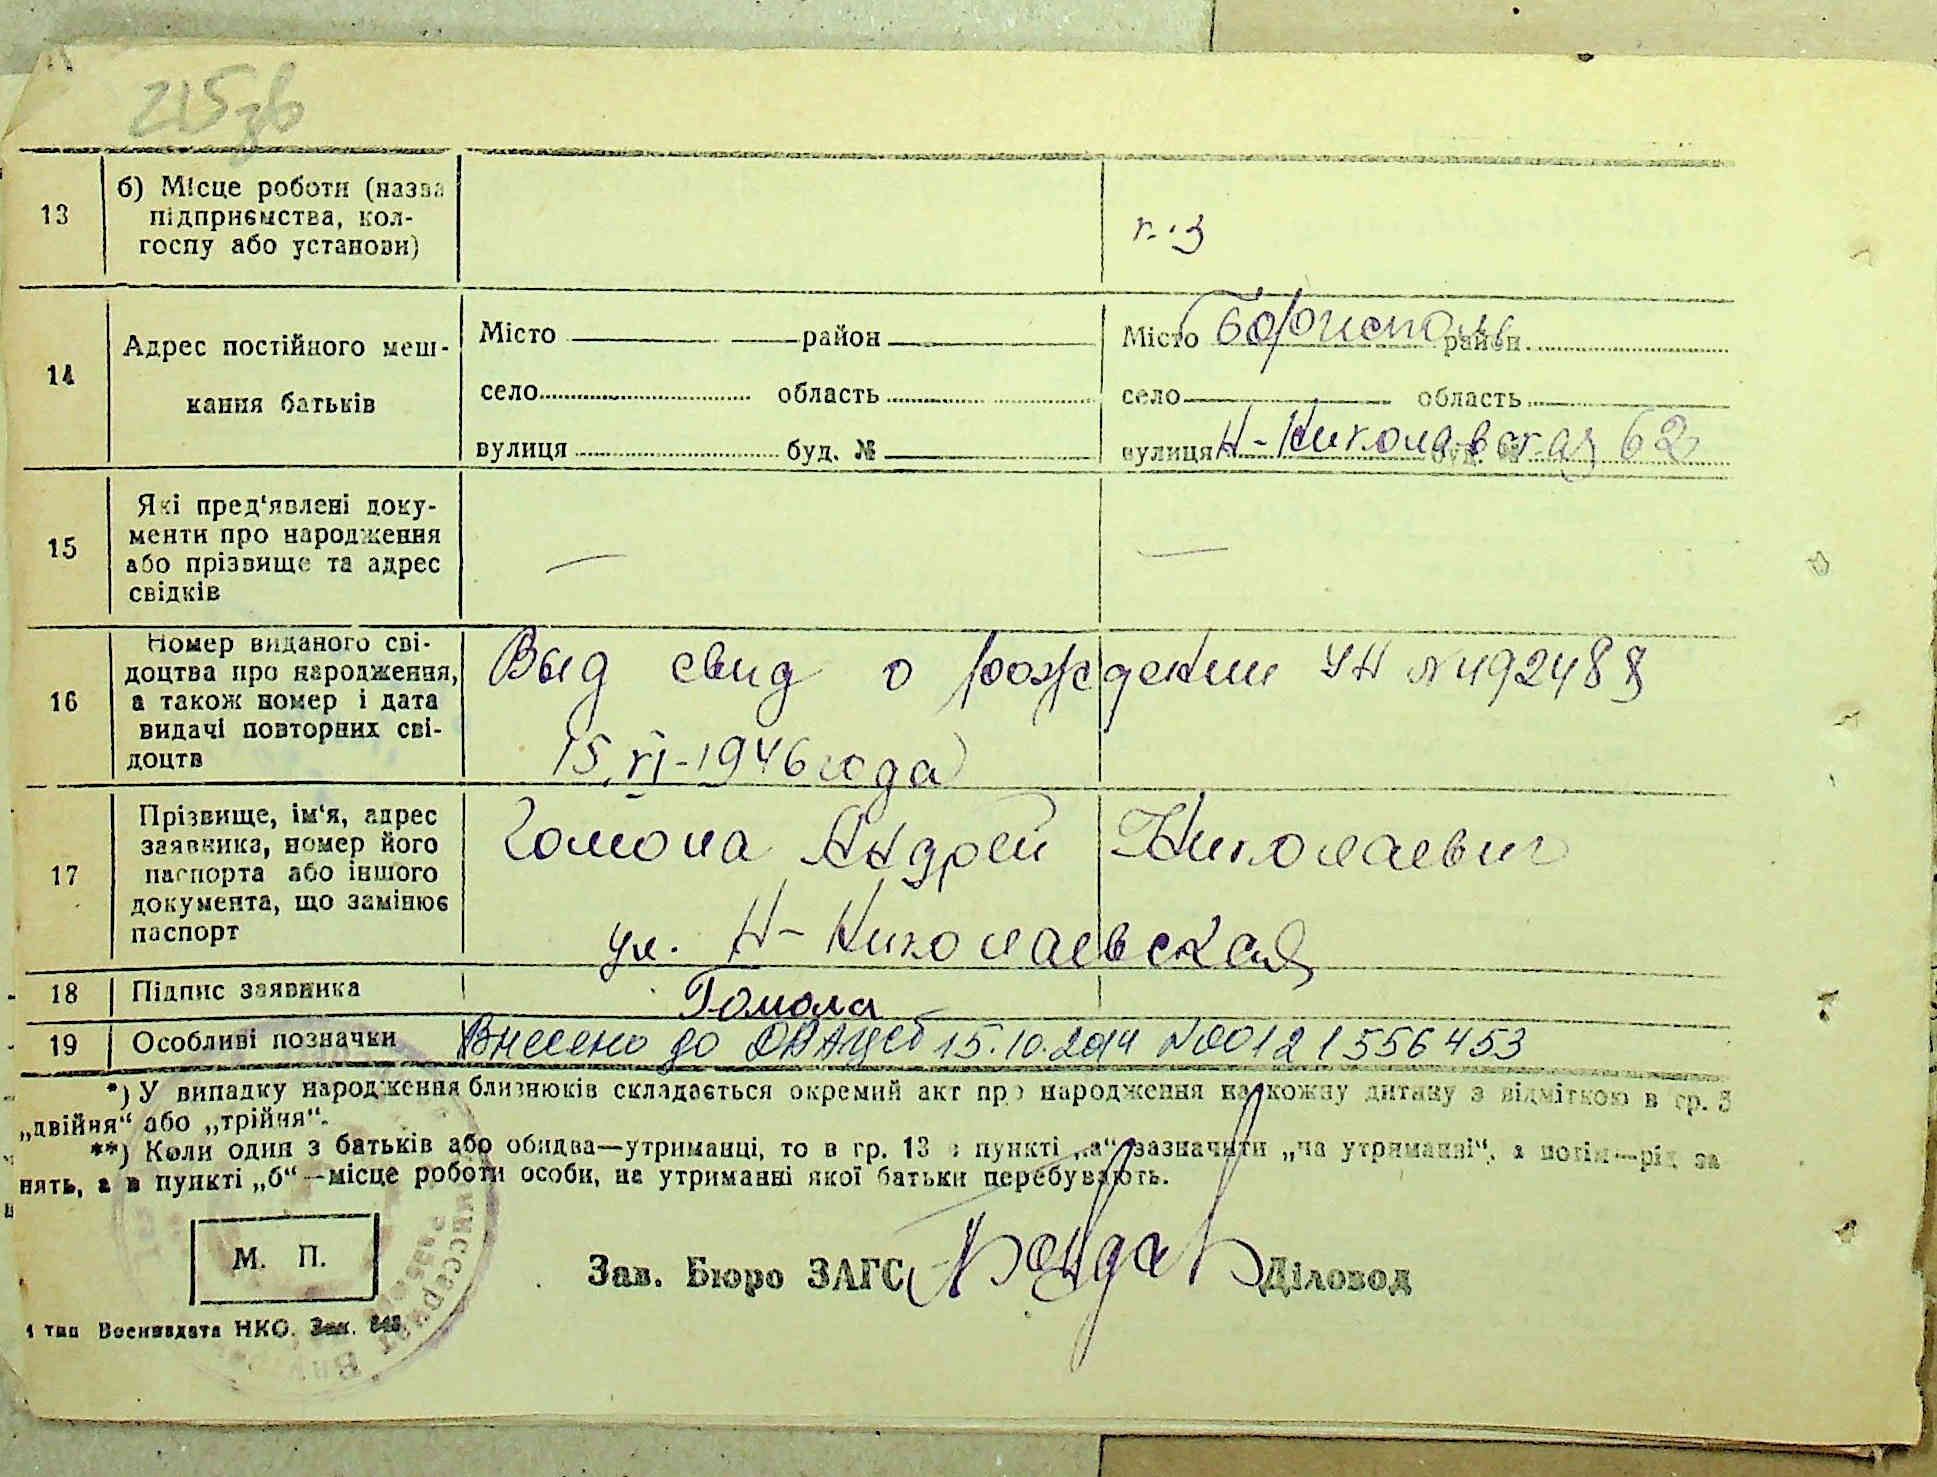 215зв
13
б) Місце роботи (назва
підприємства, кол-
госпу або установи)
14
Адрес постійного меш-
кання батьків
Місто район
село область
вулиця буд. №
Місто Бориспольь район
село область
вулиця Н-Николаевская буд. № 62
15
Які пред'явлені доку-
менти про народження
або прізвище та адрес
свідків
— —
16
Номер виданого сві-
доцтва про народження,
а також номер і дата
видачі повторних сві-
доцтв
Выд свид о рождении УН №492488
15.VI-1946 года
17
Прізвище, ім'я, адрес
заявника, номер його
паспорта або іншого
документа, що замінює
паспорт
Гомола Андрей Николаевич
ул. Н-Николаевская
18
Підпис заявника
Гомола
19
Особливі позначки
Внесено до ДРАЦСГ 15.10.2014 №00121556453
*) У випадку народження близнюків складається окремий акт про народження на кожну дитину з відміткою в гр. 5
„двійня“ або „трійня“.
**) Коли один з батьків або обидва—утриманці, то в гр. 13 в пункті „а“ зазначити „на утриманні“, а потім—рід за
нять, а в пункті „б“—місце роботи особи, на утриманні якої батьки перебувають.
М. П.
Зав. Бюро ЗАГС Діловод
1 тип Воениздата НКО. Зак. 848.